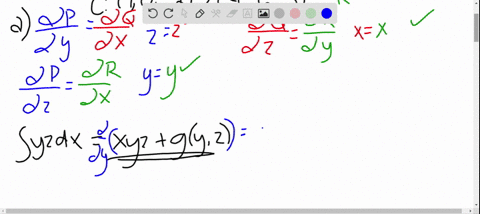 2) ∂P/∂y = ∂Q/∂x z = z ∂Q/∂z = ∂R/∂y x = x ✓
∂P/∂z = ∂R/∂x y = y ✓
∫yzdx ∂/∂y (xyz + g(y,z)) =